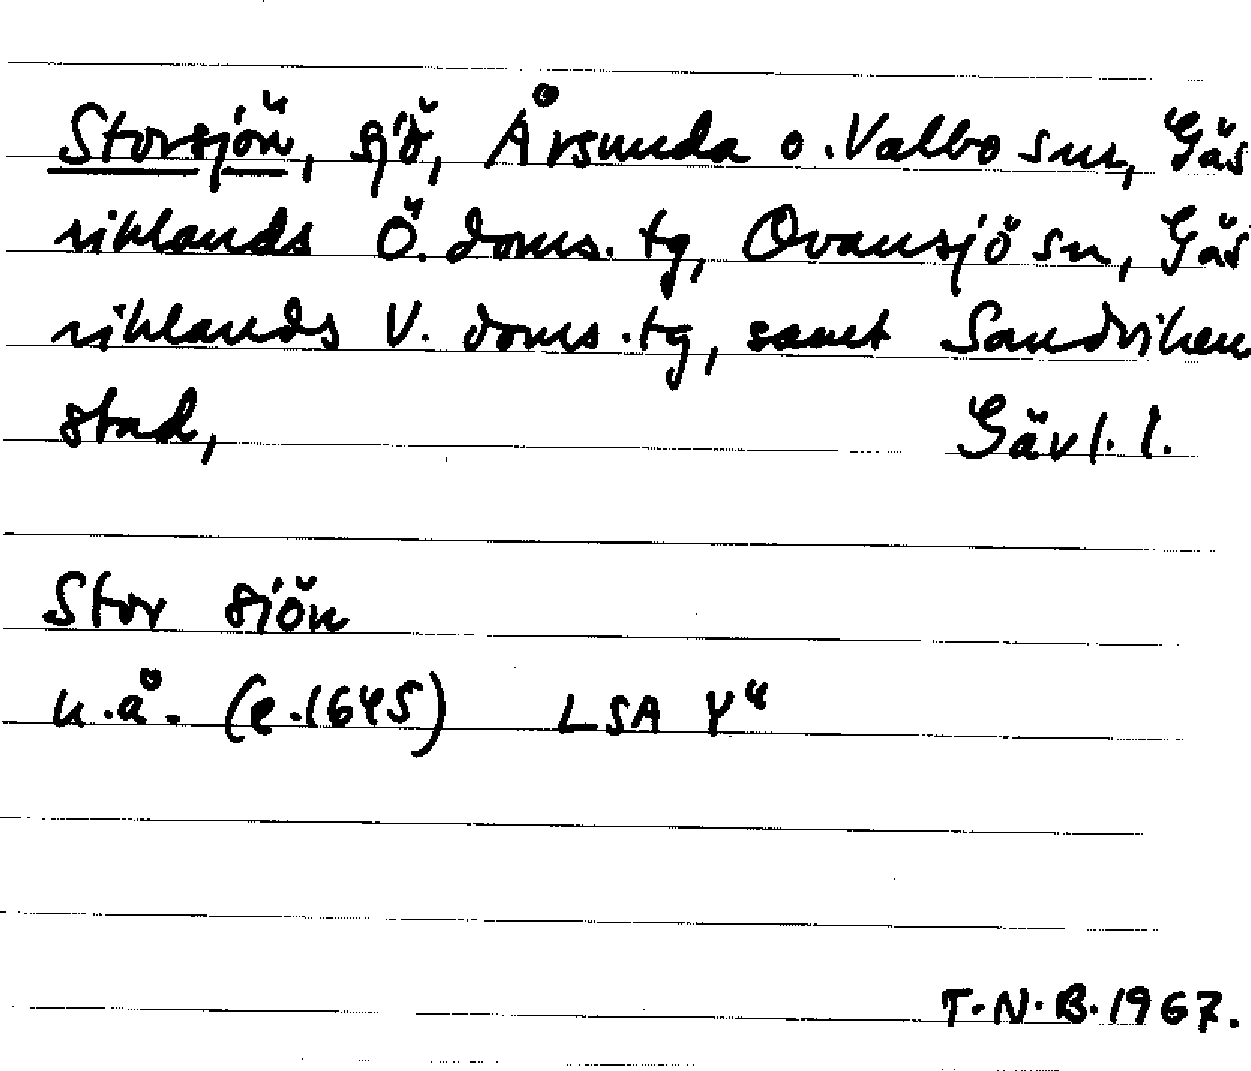 Storsjön, sjö, Årsunda o. Valbo snr, Gäs
riklands Ö. doms. tg, Ovansjö sn, Gäs
riklands V. doms. tg, samt Sandviken
stad, Gävl. l.
Stor siön
u.å. (e.1645) LSA Y⁴
T.N.B. 1967.